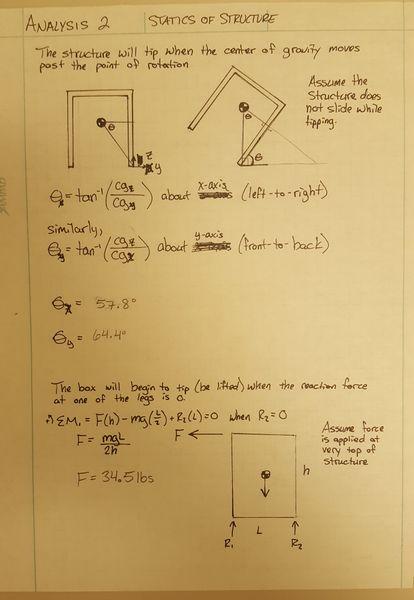 ANALYSIS 2 STATICS OF STRUCTURE
The structure will tip when the center of gravity moves
past the point of rotation
Assume the
structure does
not slide while
tipping.
θ
z
y
θ
θ
θx = tan⁻¹(cgz/cgy) about x-axis (left-to-right)
similarly,
θy = tan⁻¹(cgz/cgx) about y-axis (front-to-back)
θx = 57.8°
θy = 64.4°
The box will begin to tip (be lifted) when the reaction force
at one of the legs is 0.
∴ ΣM₁ = F(h) - mg(L/2) + R₂(L) = 0 when R₂ = 0
F = mgL/2h
F = 34.5 lbs
Assume force
is applied at
very top of
structure
F
h
L
R₁
R₂